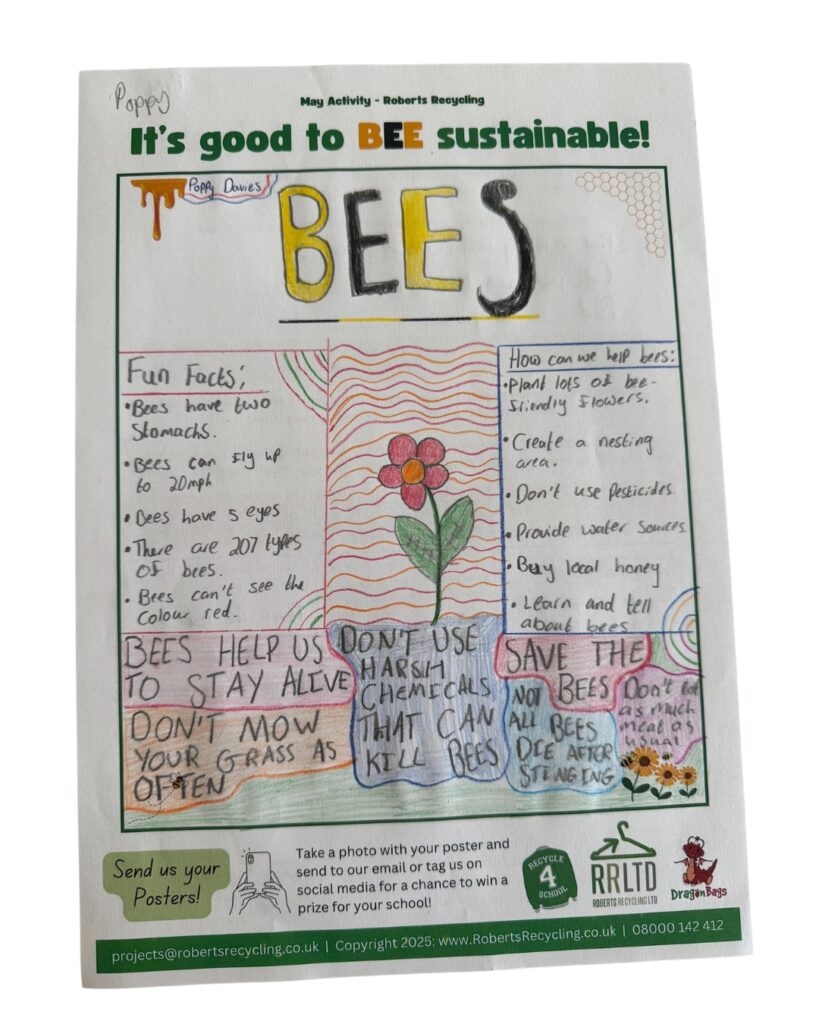 Poppy
May Activity - Roberts Recycling
It's good to BEE sustainable!
Poppy Davies
BEES
Fun Facts;
• Bees have two
stomachs.
• Bees can fly up
to 20mph
• Bees have 5 eyes
• There are 207 types
of bees.
• Bees can't see the
colour red.
How can we help bees:
• Plant lots of bee-
friendly flowers.
• Create a nesting
area.
• Don't use Pesticides.
• Provide water sources.
• Buy local honey
• Learn and tell
about bees
BEES HELP US
TO STAY ALIVE
DON'T MOW
YOUR GRASS AS
OFTEN
DON'T USE
HARSH
CHEMICALS
THAT CAN
KILL BEES
SAVE THE
BEES
NOT
ALL BEES
DIE AFTER
STINGING
Don't eat
as much
meat as
usual
Send us your
Posters!
Take a photo with your poster and
send to our email or tag us on
social media for a chance to win a
prize for your school!
RECYCLE
4
SCHOOL
RRLTD
ROBERTS RECYCLING LTD
DragonBags
projects@robertsrecycling.co.uk | Copyright 2025: www.RobertsRecycling.co.uk | 08000 142 412